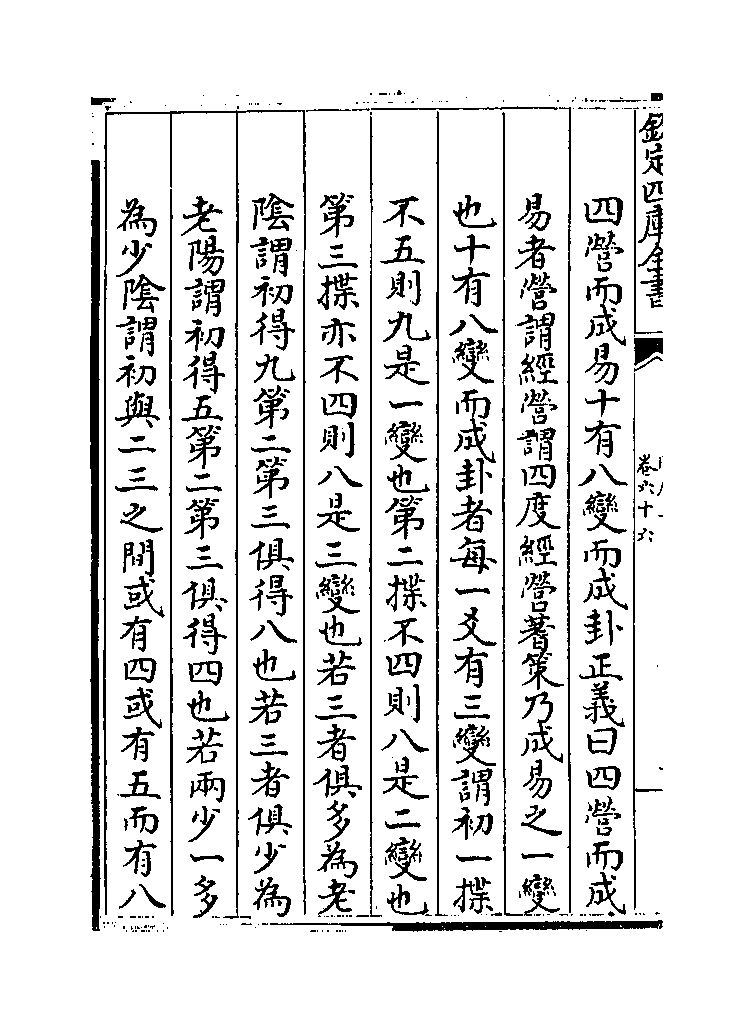 欽定四庫全書
卷六十六
四營而成易十有八變而成卦正義曰四營而成
易者營謂經營謂四度經營蓍策乃成易之一變
也十有八變而成卦者每一爻有三變謂初一揲
不五則九是一變也第二揲不四則八是二變也
第三揲亦不四則八是三變也若三者俱多為老
陰謂初得九第二第三俱得八也若三者俱少為
老陽謂初得五第二第三俱得四也若兩少一多
為少陰謂初與二三之間或有四或有五而有八